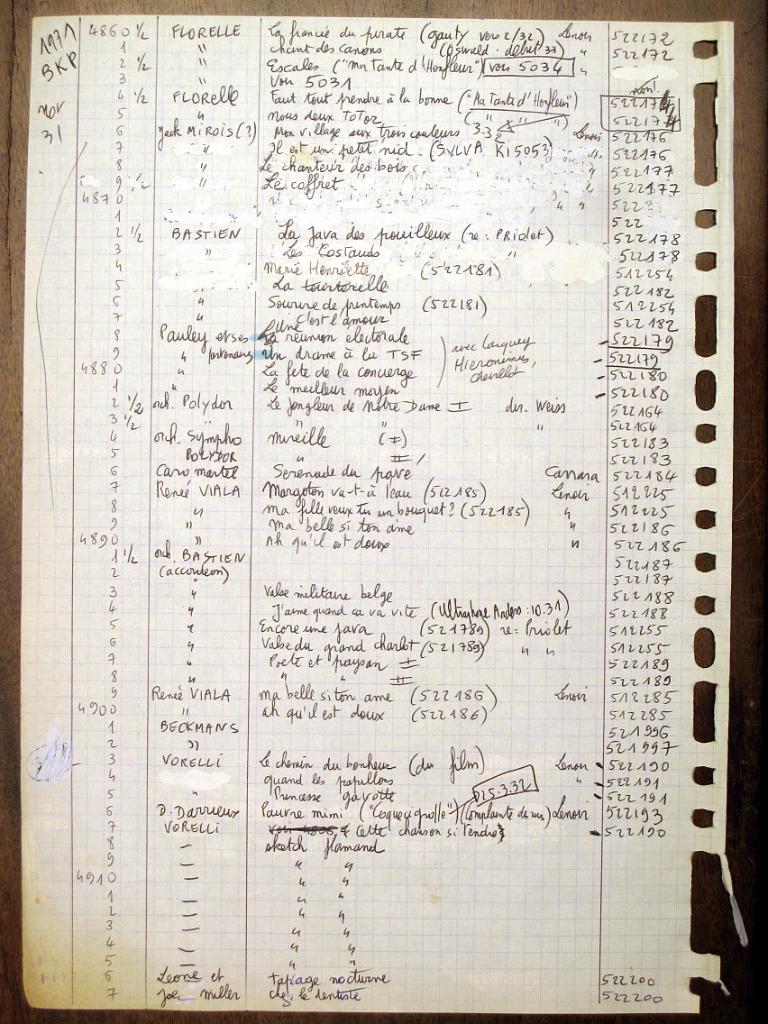 1931
BKP
nov
31
4860 ½ FLORELLE La fiancée du pirate (Gauty vers 2/32) Lenoir 522172
1 " chant des canons (Oswald - début 33) " 522172
2 ½ " Escales ("Ma Tante d'Honfleur") voir 5034 "
3 " voir 5031
4 ½ FLORELLE Faut tout prendre à la bonne ("Ma Tante d'Honfleur") 522174
5 " nous deux Totor " 522174
6 Jack MIROIS (?) Mon village aux trois couleurs 3.32 Lenoir 522176
7 " Il est un petit nid. (SYLVA KI5053) " 522176
8 " Le chanteur des bois " 522177
9 ½ " Le coffret " 522177
4870 " "
1 522
2 ½ BASTIEN La Java des pouilleux (re: PRIOLET) 522178
3 " Les Costauds " 522178
4 Marie Henriette (522181) 512254
5 " La tourterelle 522182
6 " Sourire de printemps (522181) 512254
7 " C'est l'amour 522182
8 Pauley et ses Une réunion électorale 522179
9 " partenaires Un drame à la TSF 522179
avec Carquey
Hieronimus,
chevillot
4880 " La fete de la concierge 522180
1 " Le meilleur moyen 522180
2 ½ orch. Polydor Le jongleur de Notre Dame I dir. Weiss 522164
3 ½ " " " 522164
4 orch. Sympho mireille (I) 522183
5 POLYDOR " II 522183
6 Caro martel Serenade du pave Carrara 522184
7 Reneé VIALA Margoton va-t-à l'eau (522185) Lenoir 512225
8 " ma fille veux tu un bouquet? (522185) " 512225
9 " ma belle si ton ame " 522186
4890 " Ah qu'il est doux " 522186
1 ½ orch. BASTIEN 522187
2 (accordeon) 522187
3 " Valse militaire belge 522188
4 " J'aime quand ca va vite (Ultraphone Anders: 10.31) 522188
5 " Encore une java (521789) re: Priolet 512255
6 " Valse du grand charlot (521789) " " 512255
7 " Poete et paysan I 522189
8 " " " II 522189
9 Reneé VIALA ma belle si ton ame (522186) Lenoir 512285
4900 " ah qu'il est doux (522186) 512285
1 BECKMANS 521996
2 " 521997
3 VORELLI Le chemin du bonheur (du film) Lenoir 522190
4 quand les papillons " 522191
5 " Princesse gavotte 522191
D25.3.32
6 D. Darrieux Pauvre mimi ("Coquecigrolle") (Complainte de mus) Lenoir 522193
7 VORELLI Cette chanson si tendre 522190
8 — sketch flamand
9 — " "
4910 — " "
1 — " "
2 — " "
3 — " "
4 — " "
5 — " "
6 Leone et tapage nocturne 522200
7 Joe miller chez le dentiste 522200